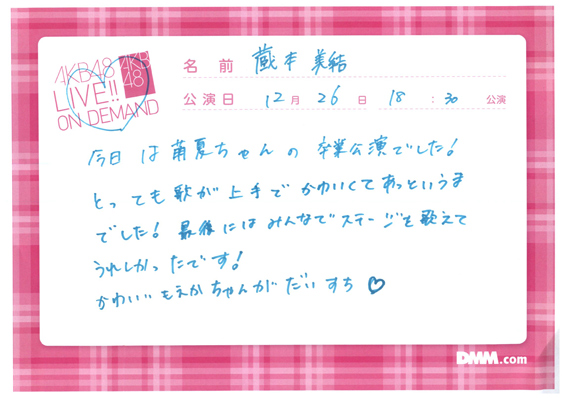 AKB48
LIVE!!
ON DEMAND
AKB
48
名前 蔵本 美結
公演日 12月 26日 18:30 公演
今日は萌夏ちゃんの 卒業公演でした!
とっても歌が上手で かわいくてあっというま
でした! 最後にはみんなでステージを歌えて
うれしかったです!
かわいいもえかちゃんがだいすち♡
DMM.com